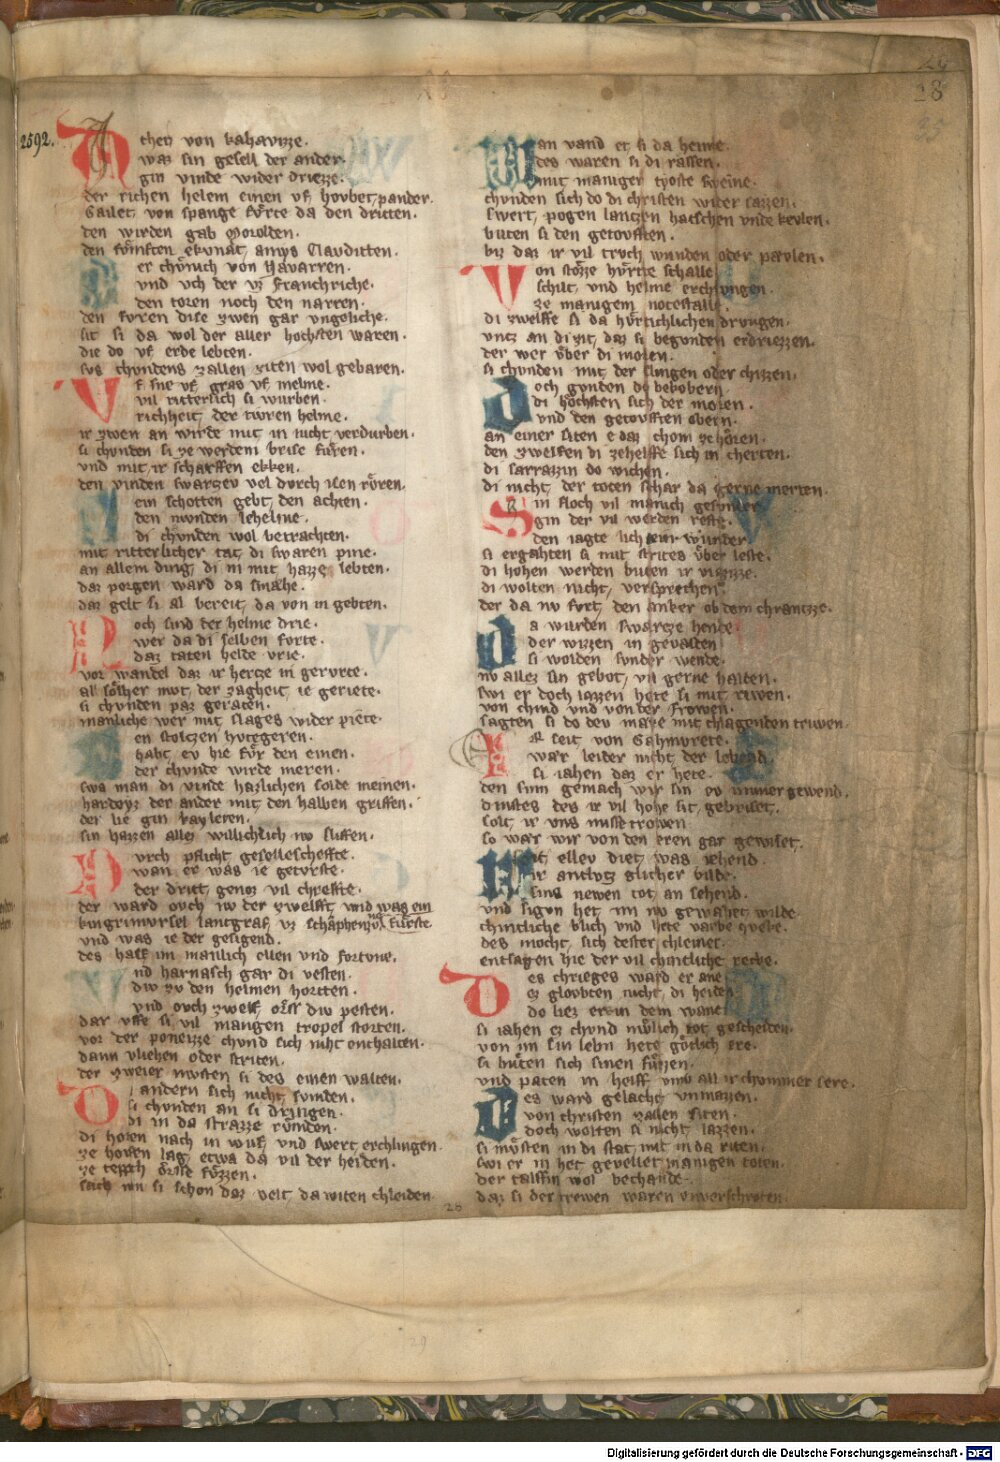 28
2592.
then von kahavizze.
waz sin gesell der ander.
gin vinde wider driezze.
der richen helem einen vf hovbet, pander.
Gailet, von spange fůrte da den dritten.
den wirden gab Morolden.
den fůmften ekunat, amys Clauditten.
er chůnich von Navarren.
vnd vch der vz Franchriche.
den tozen noch den narren.
den fůren dise zwen gar vngeliche.
sit si da wol der aller hochsten waren.
die do vf erde lebten.
svs chvndens zallen ziten wol gebaren.
vil ritterlich si wurben.
richheit, der twren helme.
ir zwen an wirde mit, in lucht verdurben.
si chvnden si ze werdem brise fůren.
vnd mit, ir scharffen ekken.
den vinden swarzev vel dvrch isen rőren.
ein schotten gebt, den achten.
den nvnden leheline.
di chvnden wol betrachten.
mit ritterlicher tat, di swaren pine.
an allem ding, di in mit hazze lebten.
daz porgen ward da smahe.
daz gelt si al bereit, da von in gebten.
och sind der helme drie.
wer da di selben forte.
daz taten helde vrie.
vor wandel daz ir hertze in gervrte.
al sőlher mvt, der zagheit, ie geriete.
si chvnden paz geraten.
manliche wer mit slages wider piete.
en stolczen hvtegeren.
habt, ev hie fůr den einen.
der chvnde wirde meren.
swa man di vinde hazlichen solde meinen.
hardoyz der ander mit den halben griffen.
der lie gin kayleten.
sin hazzen allez willichlich nv sliffen.
vrch pflicht geselleschefte.
wan er was ie getvrste.
der dritt, genoz vil chrefte.
der ward ovch nv der zwelfft, vnd was ein
kingrimvrsel lantgraf, vz schamphenzvn fůrste.
vnd was ie der gesigend.
des half im manlich ellen vnd fortvne.
nd harnasch gar di vesten.
div zv den helmen hortten.
vnd ovch zwelf, őrss div pesten.
dar vffe si vil mangen tropel storten.
vor der poneizze chvnd sich niht onthalten.
dann vliehen oder striten.
der zweier mvsten si des einen walten.
andern sich nicht, svmden.
si chvnden an si dringen.
di in da strazze růmden.
di horten nach in wuf, vnd swert, erchlingen.
ze hovfen lag, etwa da vil der heiden.
ze tepph őrsse fůzzen.
sach mn si schon daz velt, da witen chleiden.
an vand er si da heime.
des waren si di rassen.
mit maniger tyoste
chvnden sich do di christen wider sazzen.
swert, pogen lantzen hatschen vnde kevlen.
buten si den getovfften.
biz daz ir vil trvch wunden oder pevlen.
on stozze hůrtte schalle
schilt, vnd helme erchlvngen.
ze manigem notestalle.
di zwelffe si da hůrtichlichen drvngen.
vntz an di zit, daz si begvnden erdriezzen.
der wer vber di moren.
si chvnden mit der slingen oder chizzen.
och gvnden do bekobern
di hőchsten sich der moren.
vnd den getovfften obern.
an einer siten e daz chom ze hőren.
den zwelfen di zehelffe sich in cherten.
di sarrazzin do wichen.
di nicht, der toten schar da gerne merten.
in floch vil manich gesvnder.
gin der vil werden reste.
den iagte sich sein wunder
si ergahten si mit strites vber leste.
di hohen werden buten ir
di wolten nicht, versprechen.
der da nv fort, den anker ob dem chrantzze.
a wurden swartze hende.
der wizzen in gevalden
si wolden svnder wende.
nv allez sin gebot, vil gerne halten.
swi er doch iazzen hete si mit rewen.
von chind vnd von der frowen.
sagten si do dev mare mit chlagenden triwen.
al seit von Gahmvrete.
wær leider nicht, der lebend.
si iahen daz er hete.
den sinn gemach wir sin ev immer gewend.
dinstes des ir vil hohe sit, gebriset.
solt, ir vns misse trowen
so wær wir von den eren gar gewiset.
it, ellev diet, was iehend.
ir antlvtz glicher bilde.
sins newen tot, an sehend.
vnd sigvn het, im nv gewahet, wilde.
chintliche blich vnd hete varbe qveke.
des mocht, sich dester chleiner.
entsagen hie der vil chintliche recke.
es chrieges ward er ane
ez glovbten nicht, di heiden
do liez er in dem wane
si iahen ez chvnd mvlich tot gescheiden.
von im sin lebn hete gőtlich ere.
si buten sich sinen fůzzen.
vnd paten in helff, vmb all ir chvmmer sere.
es ward gelacht, vnmazzen.
von christen zallen siten.
doch wolten si nicht, lazzen.
si mvsten in di stat, mit in da riten.
swi er in het gevellet, manigen toten.
der talffin wol bechande.
daz si der trewen waren vnverschroten.
28
29
Digitalisierung gefördert durch die Deutsche Forschungsgemeinschaft - DFG